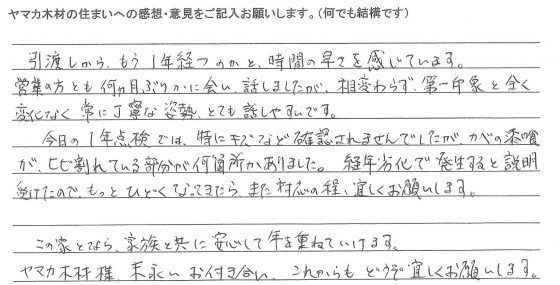 ヤマカ木材の住まいへの感想・意見をご記入お願いします。(何でも結構です)
引渡しから、もう1年経つのかと、時間の早さを感じています。
営業の方とも何カ月ぶりかに会い、話しましたが、相変わらず、第一印象と全く
変化なく常に丁寧な姿勢、とても話しやすいです。
今日の1年点検では、特にキズなど確認されませんでしたが、カベの漆喰
が、ヒビ割れている部分が何箇所かありました。経年劣化で発生すると説明
受けたので、もっとひどくなってきたら、また対応の程、宜しくお願いします。
この家となら、家族と共に安心して年を重ねていけます。
ヤマカ木材様、末永いお付き合い、これからもどうぞ宜しくお願いします。